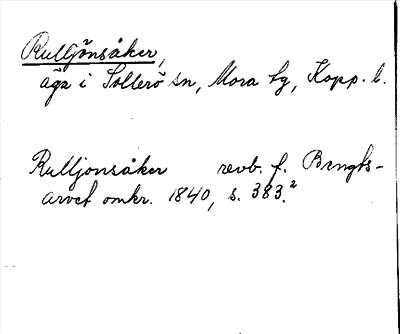 Rulljönsåker,
äga i Sollerö sn, Mora tg, Kopp. l.
Rulljonsåker revb. f. Brngts-
arvet omkr. 1840, s. 383.²